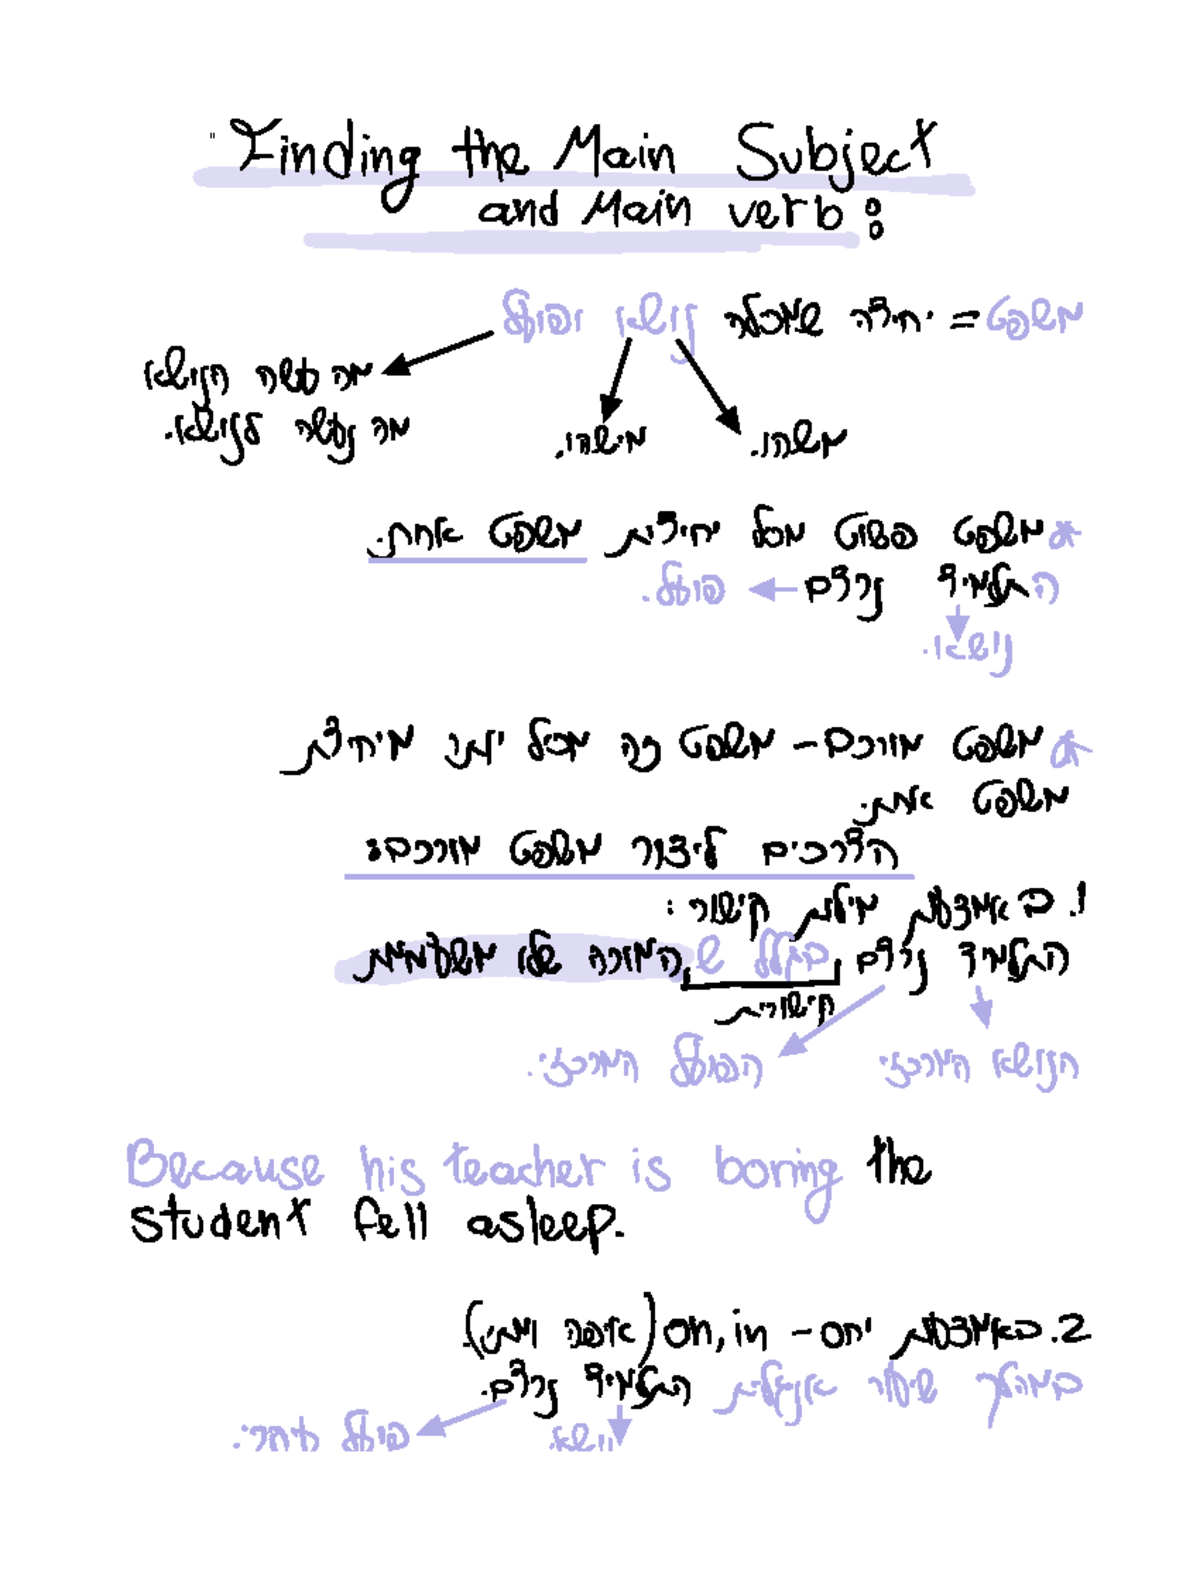 "Finding the Main Subject
and Main verb:
משפט = יחידה שמכילה נושא ופועל
מה עשה הנושא
מה נעשה לנושא.
מישהו.
משהו.
* משפט פשוט מכל יחידת משפט אחת.
התלמיד נרדם ← פועל.
נושא.
* משפט מורכב - משפט זה מכיל יותר מיחידת
משפט אחת.
הדרכים ליצור משפט מורכב:
1. באמצעות מילות קישור:
התלמיד נרדם בגלל ש המורה שלו משעממת
קישורית
הנושא המרכזי
הפועל המרכזי.
Because his teacher is boring the
student fell asleep.
2. באמצעות יחס - on, in (איפה ומתי).
במהלך שיעור אנגלית התלמיד נרדם.
נושא.